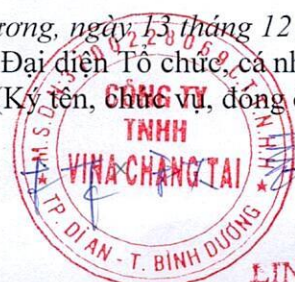 ương, ngày 13 tháng 12
Đại diện Tổ chức, cá nh
(Ký tên, chức vụ, đóng
CÔNG TY
TNHH
VINA CHANG TAI
TP. DĨ AN - T. BÌNH DƯƠNG
LIN